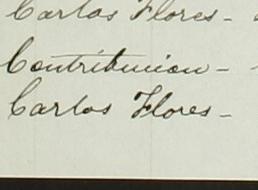 Carlos Flores -
Contribucion -
Carlos Flores -